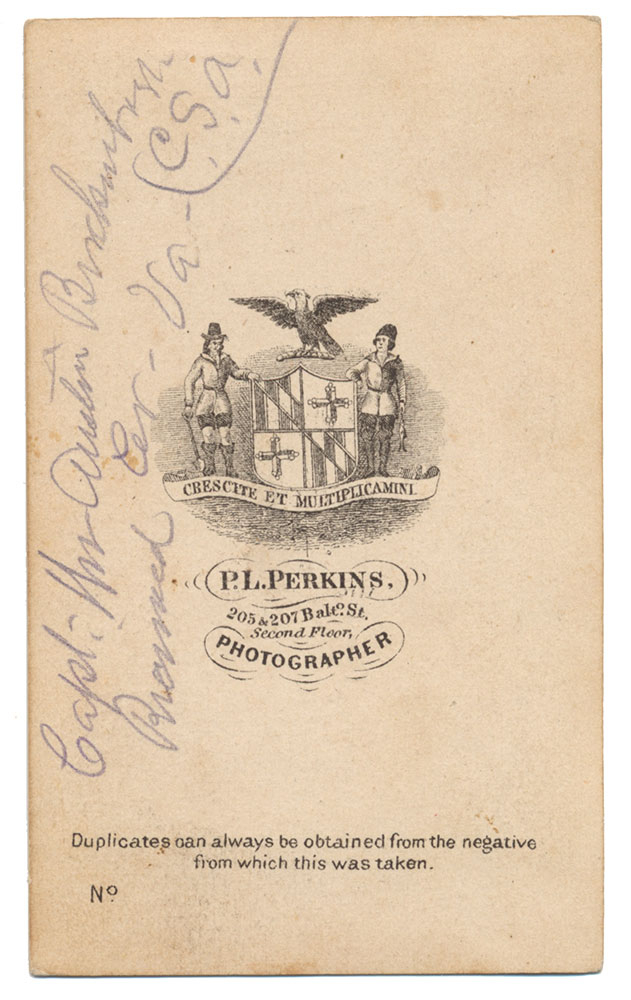 Capt. Wm Austin
Va - (C.S.A.
CRESCITE ET MULTIPLICAMINI
P.L. PERKINS,
205 & 207 Balto. St.
Second Floor,
PHOTOGRAPHER
Duplicates can always be obtained from the negative
from which this was taken.
No